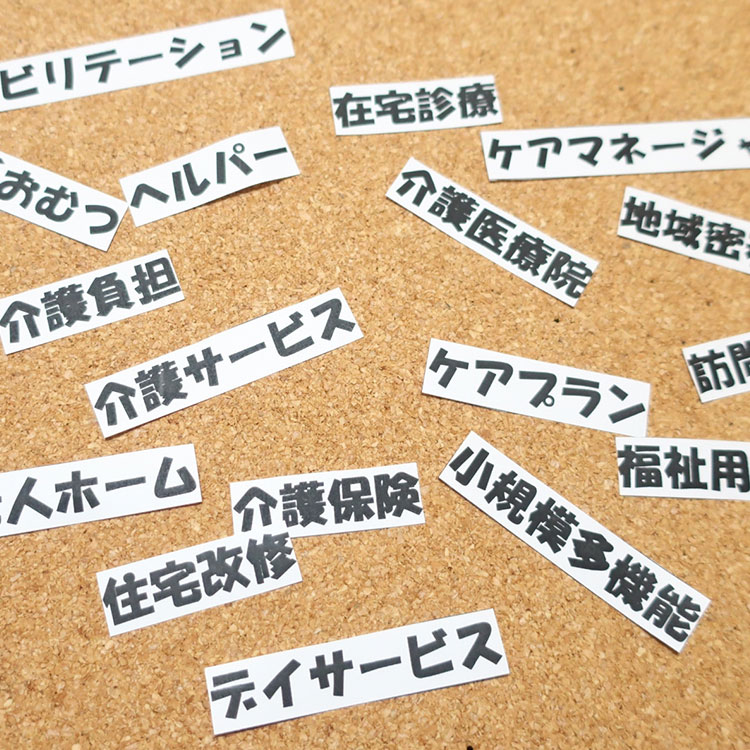 ビリテーション
在宅診療
ケアマネージャ
おむつ
ヘルパー
介護医療院
地域密
介護負担
介護サービス
ケアプラン
訪問
人ホーム
福祉用
介護保険
小規模多機能
住宅改修
デイサービス